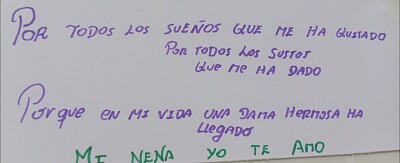 POR TODOS LOS SUEÑOS QUE ME HA QUITADO
POR TODOS LOS SUSTOS
QUE ME HA DADO
PORQUE EN MI VIDA UNA DAMA HERMOSA HA
LLEGADO
MI NENA YO TE AMO